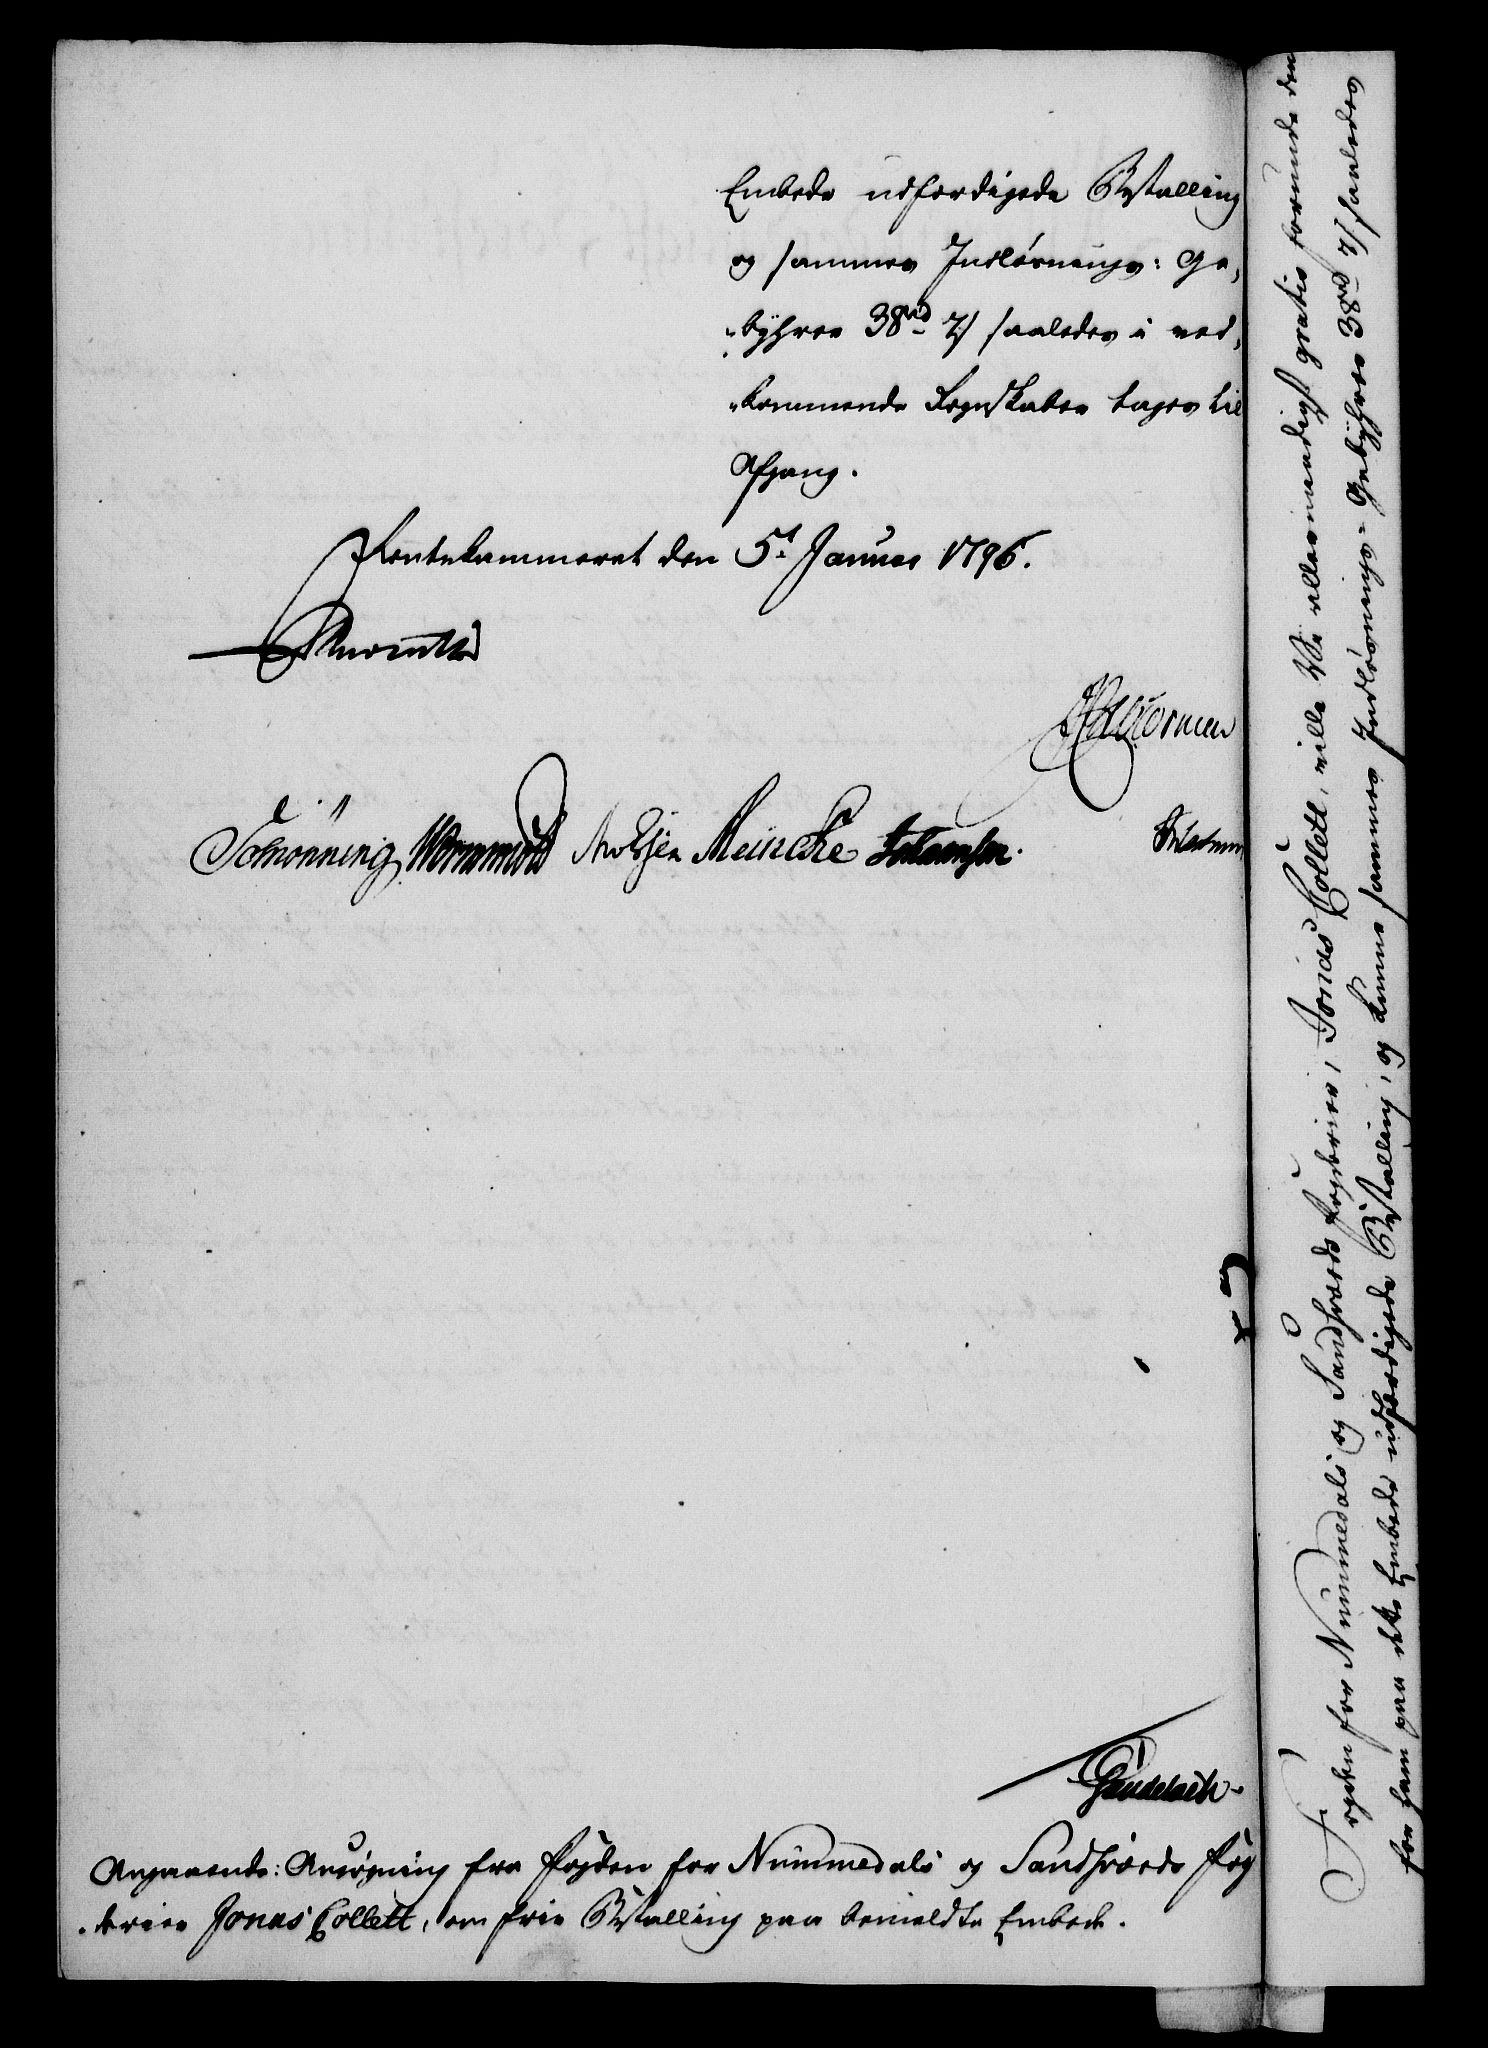 Embede udfærdigede Bestalling
og sammes Indløsnings: Ge,
"byhrer 38rd 7/ saaledes i ved,
"kommende Regnskaber tages til
Afgang.
Rentekammeret den 5t Januar 1796.
Schiønning Wormskiold Meincke
Angaaende: Ansøgning fra Fogden for Nummedals og Sandsværds Fog
"derier Jonas Collett, om frie Bestalling paa bemeldte Embede.
Fogden for Nummedals og Sandsværds Fogderier, Jonas Collett, ville Vi allernaadigst gratis forunde den
for ham paa dette Embede udfærdigede Bestalling, og kunne sammes Indløsnings-Gebyhrer 38rd 7/ saaledes